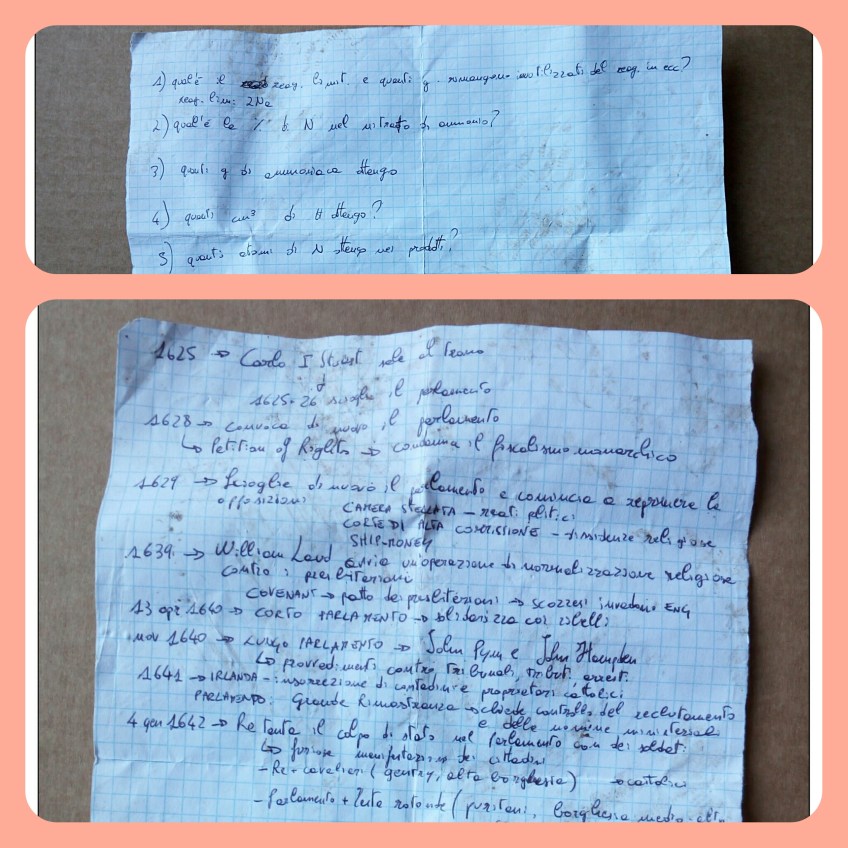 1) qual'è il reag. limit. e quanti g rimangono inutilizzati del reag. in ecc?
reag. lim: 2Na
2) qual'è la % di N nel nitrato di ammonio?
3) quanti g di ammoniaca ottengo
4) quanti cm³ di H ottengo?
5) quanti atomi di N ottengo nei prodotti?
1625 → Carlo I Stuart sale al trono
1625-26 scioglie il parlamento
1628 → convoca di nuovo il parlamento
↳ Petition of Rights → condanna il fiscalismo monarchico
1629 → Scioglie di nuovo il parlamento e comincia a reprimere le
opposizioni
CAMERA STELLATA - reati politici
CORTE DI ALTA COMMISSIONE - dissidenze religiose
SHIP-MONEY
1639 → William Laud avvia un'operazione di normalizzazione religiosa
contro i presbiteriani
COVENANT → patto dei presbiteriani → scozzesi invadono ENG
13 apr 1640 → CORTO PARLAMENTO → solidarizza coi ribelli
nov 1640 → LUNGO PARLAMENTO → John Pym e John Hampden
↳ provvedimenti contro tribunali, tributi, arresti
1641 → IRLANDA - insurrezione di contadini e proprietari cattolici
PARLAMENTO: Grande Rimostranza → chiede controllo del reclutamento
e delle nomine ministeriali
4 gen 1642 → Re tenta il colpo di stato nel Parlamento con dei soldati
↳ furiose manifestazioni dei cittadini
- Re + cavalieri (gentry, alta borghesia) → cattolici
- Parlamento + Teste rotonde (puritani, borghesia medio-alta